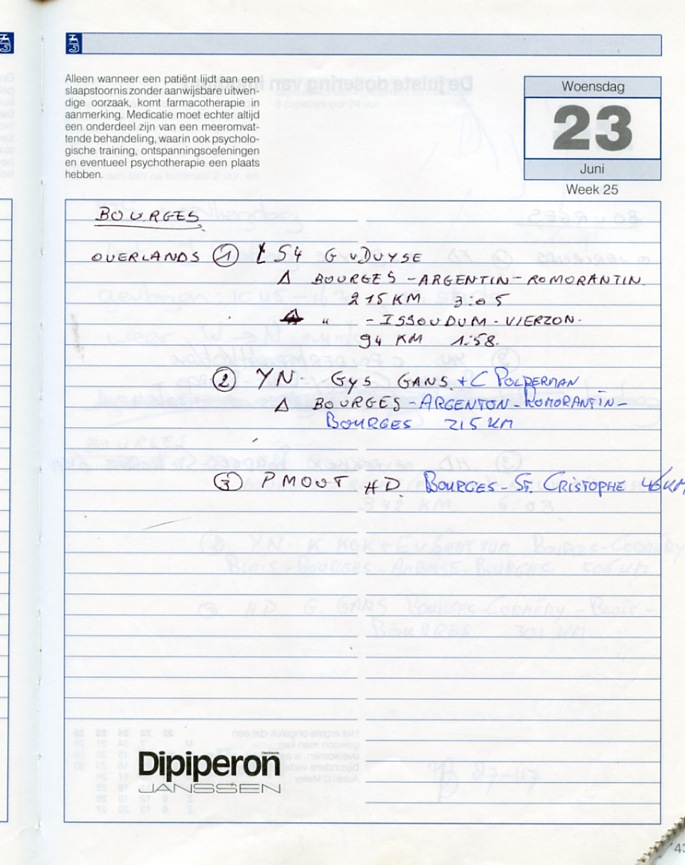 Alleen wanneer een patiënt lijdt aan een
slaapstoornis zonder aanwijsbare uitwen-
dige oorzaak, komt farmacotherapie in
aanmerking. Medicatie moet echter altijd
een onderdeel zijn van een meeromvat-
tende behandeling, waarin ook psycholo-
gische training, ontspanningsoefeningen
en eventueel psychotherapie een plaats
hebben.
Woensdag
23
Juni
Week 25
BOURGES
OVERLANDS ① LS4 G vDUYSE
Δ BOURGES - ARGENTIN - ROMORANTIN.
215 KM 3:05
" - ISSOUDUM - VIERZON.
94 KM 1:58.
② YN - GYS GANS. + C POLDERMAN
Δ BOURGES - ARGENTON - ROMORANTIN -
BOURGES 215 KM
③ P MOUT HD. BOURGES - ST. CRISTOPHE 45 KM
Dipiperon
JANSSEN